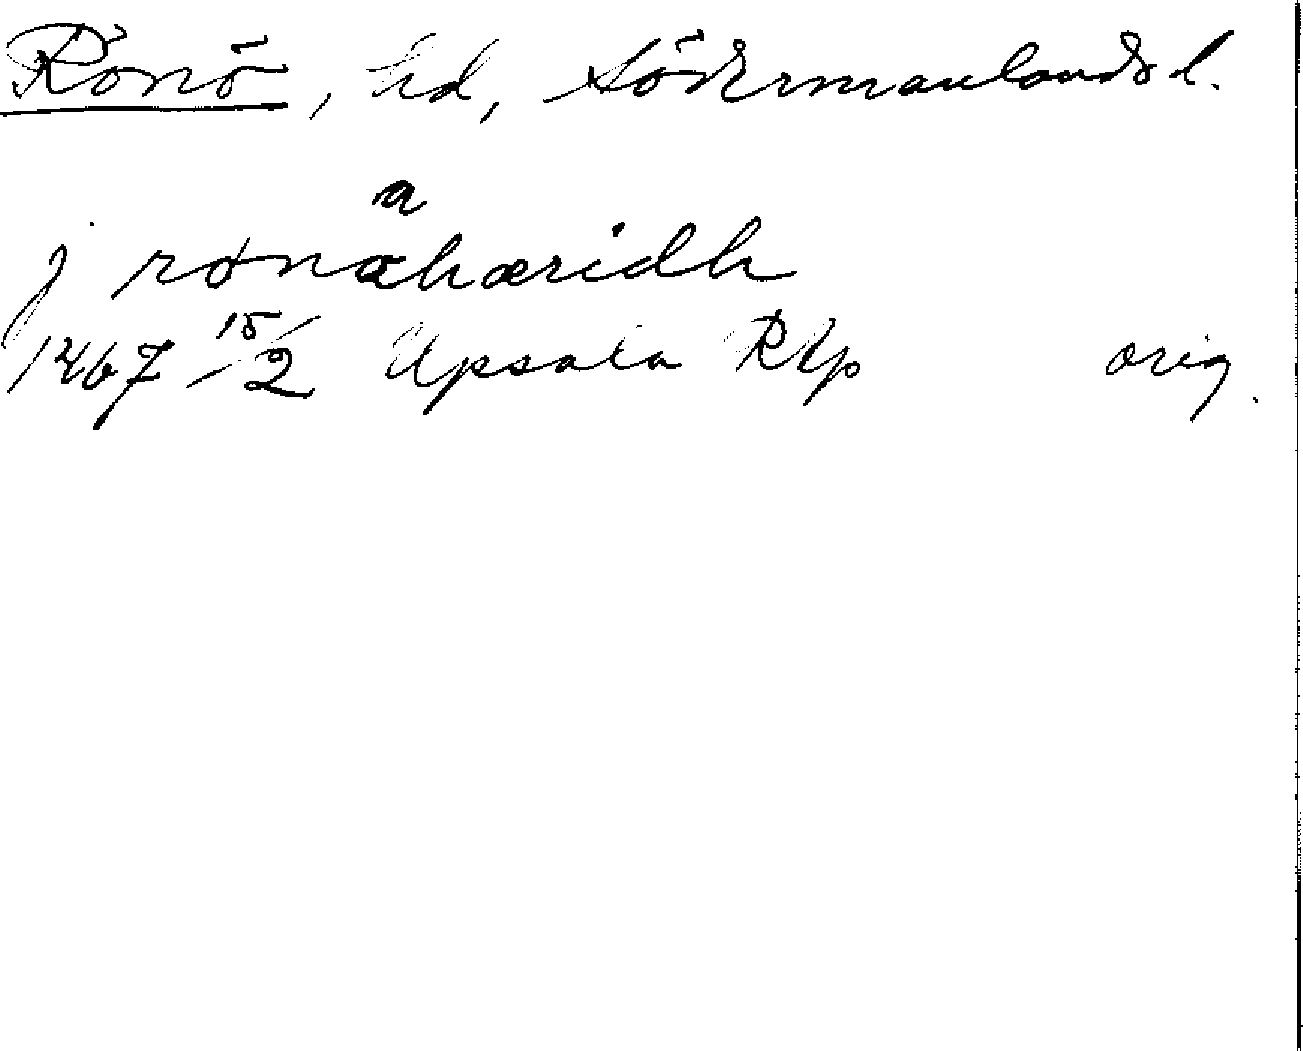 Rönö, hd, Södermanlands l.
a
j rønahæridh
1467 15/2 Upsala RAp orig.